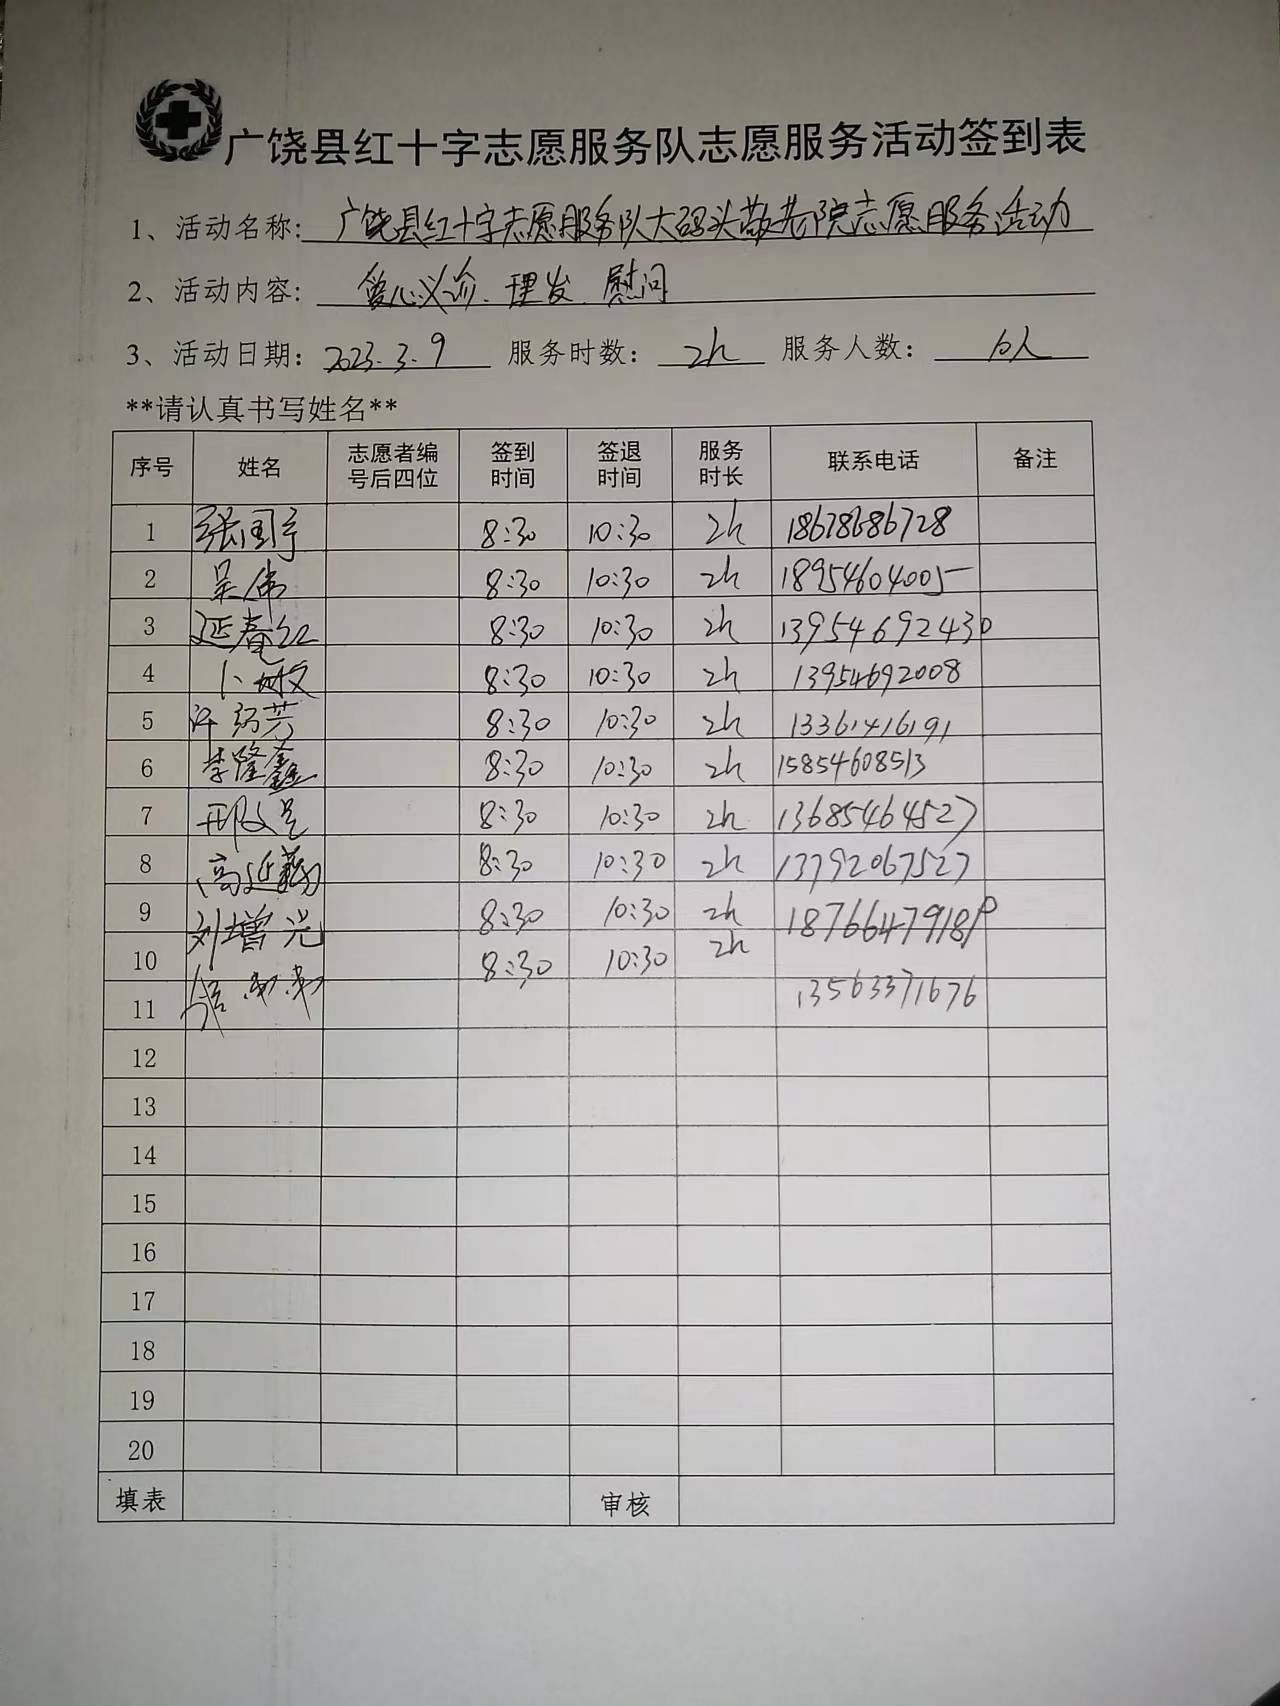 广饶县红十字志愿服务队志愿服务活动签到表
1、活动名称: 广饶县红十字志愿服务队大码头敬老院志愿服务活动
2、活动内容: 爱心义诊、理发、慰问
3、活动日期: 2023.3.9 服务时数: 2h 服务人数: 10人
**请认真书写姓名**
序号 姓名 志愿者编号后四位 签到时间 签退时间 服务时长 联系电话 备注
1 张国宇 8:30 10:30 2h 18678686728
2 吴伟 8:30 10:30 2h 18954604005
3 延春红 8:30 10:30 2h 13954692430
4 卜敏 8:30 10:30 2h 13954692008
5 许 芳 8:30 10:30 2h 13361416191
6 李隆鑫 8:30 10:30 2h 15854608513
7 邢文 8:30 10:30 2h 13685464527
8 高延 8:30 10:30 2h 13792067527
9 刘增光 8:30 10:30 2h
10 8:30 10:30 2h
11 13563371676
12
13
14
15
16
17
18
19
20
填表 审核